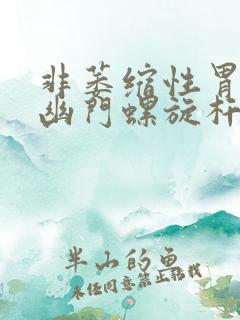 非萎缩性胃
幽门螺旋杆
半山的鱼
未经同意禁止转载